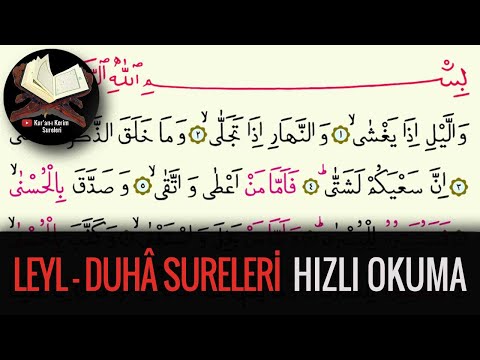 Kur'an-ı Kerim
Sureleri
بِسْــــمِ اللّٰهِ
وَالَّيْلِ اِذَا يَغْشٰىۙ ﴿١﴾ وَالنَّهَارِ اِذَا تَجَلّٰىۙ ﴿٢﴾ وَمَا خَلَقَ الذَّكَرَ
﴿٣﴾ اِنَّ سَعْيَكُمْ لَشَتّٰىۜ ﴿٤﴾ فَاَمَّا مَنْ اَعْطٰى وَاتَّقٰىۙ ﴿٥﴾ وَصَدَّقَ بِالْحُسْنٰىۙ
LEYL - DUHÂ SURELERİ HIZLI OKUMA